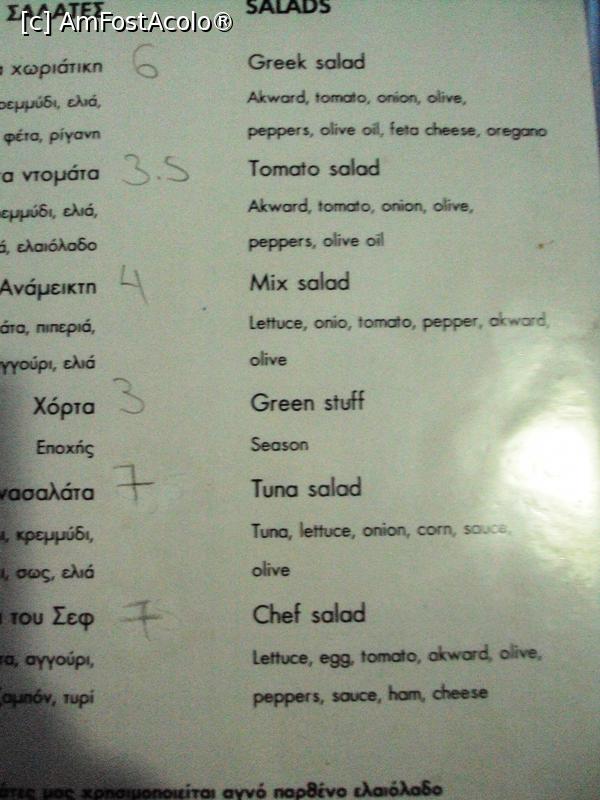 [c] AmFostAcolo®
ΣΑΛΑΤΕΣ SALADS
χωριάτικη 6 Greek salad
ρεμμύδι, ελιά, Akward, tomato, onion, olive,
φέτα, ρίγανη peppers, olive oil, feta cheese, oregano
τα ντομάτα 3.5 Tomato salad
εμμύδι, ελιά, Akward, tomato, onion, olive,
ά, ελαιόλαδο peppers, olive oil
Ανάμεικτη 4 Mix salad
άτα, πιπεριά, Lettuce, onio, tomato, pepper, akward,
γγούρι, ελιά olive
Χόρτα 3 Green stuff
Εποχής Season
νασαλάτα 7 Tuna salad
ι, κρεμμύδι, Tuna, lettuce, onion, corn, sauce,
ι, σως, ελιά olive
του Σεφ 7 Chef salad
τα, αγγούρι, Lettuce, egg, tomato, akward, olive,
ζαμπόν, τυρί peppers, sauce, ham, cheese
άτες μας χρησιμοποιείται αγνό παρθένο ελαιόλαδο